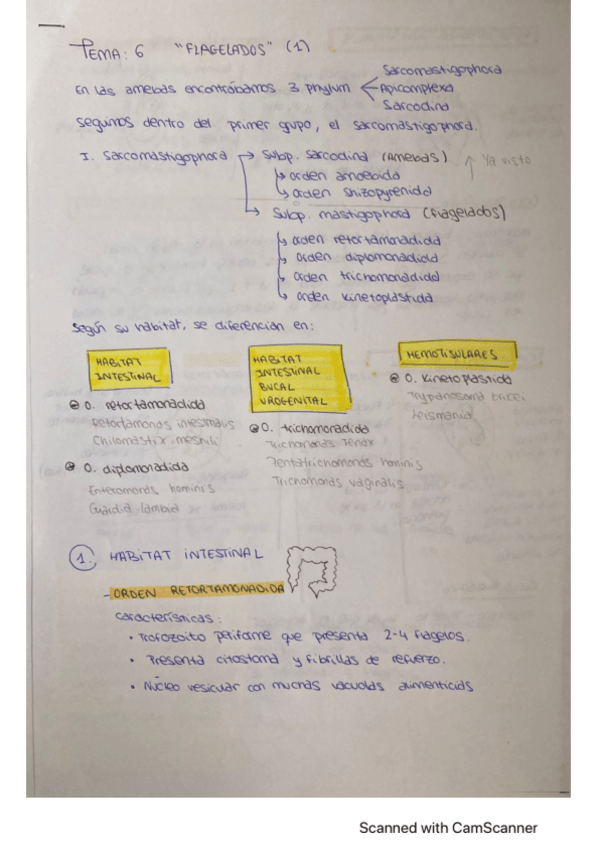 TEMA: 6 "FLAGELADOS" (1)
En las amebas encontrábamos 3 phylum
Sarcomastigophora
Apicomplexa
Sarcodina
Seguimos dentro del primer grupo, el sarcomastigophora.
I. Sarcomastigophora
Subp. sarcodina (Amebas) Ya visto
orden amoebida
orden shizopyrenida
Subp. mastigophora (Flagelados)
orden retortamonadida
orden diplomonadida
orden trichomonadida
orden kinetoplastida
Según su hábitat, se diferencian en:
HABITAT
INTESTINAL
O. retortamonadida
Retortamonas intestinalis
Chilomastix mesnili
O. diplomonadida
Enteromonas hominis
Guardia lamblia
HABITAT
INTESTINAL
BUCAL
UROGENITAL
O. trichomonadida
Trichomonas Tenax
Pentatrichomonas hominis
Trichomonas vaginalis
HEMOTISULARES
O. Kinetoplastida
Trypanosoma brucei
Leismania
1. HABITAT INTESTINAL
- ORDEN RETORTAMONADIDA
Características:
• Trofozoito periforme que presenta 2-4 flagelos.
• Presenta citostoma y fibrillas de refuerzo.
• Núcleo vesicular con muchas vacuolas alimenticias
Scanned with CamScanner